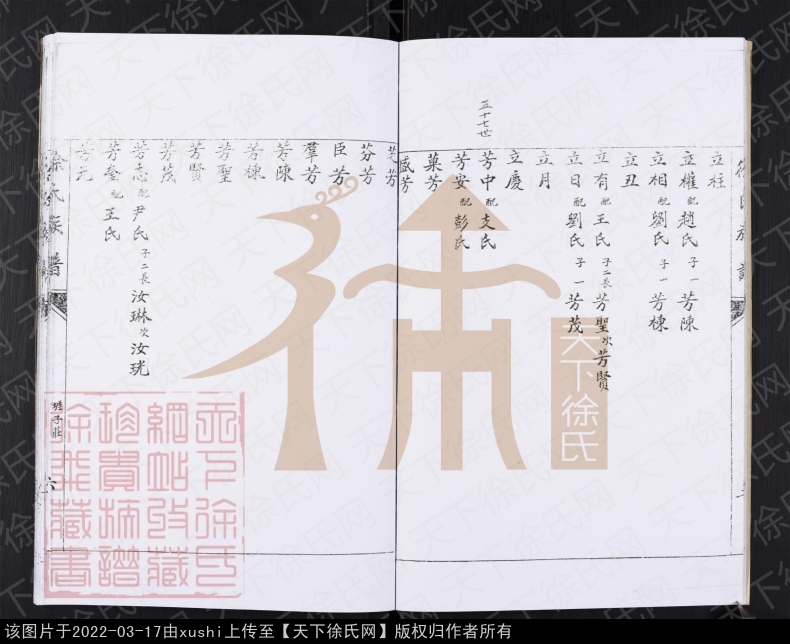 五十七世
立柱
立權 配 趙氏 子一 芳陳
立相 配 劉氏 子一 芳棟
立丑
立有 配 王氏 子二長 芳聖 次 芳賢
立日 配 劉氏 子一 芳茂
立月
立慶
芳中 配 支氏
芳安 配 彭氏
菓芳
盛芳
芝芳
芬芳
臣芳
羣芳
芳陳
芳棟
芳聖
芳賢
芳茂
芳志 配 尹氏 子二長 汝琳 次 汝珖
芳奎 配 王氏
芳元
徐氏族譜
班子莊
六
天下徐氏
天下徐氏网
天下徐氏
網站收藏
珍貴捐譜
徐飛藏書
该图片于2022-03-17由xushi上传至【天下徐氏网】版权归作者所有